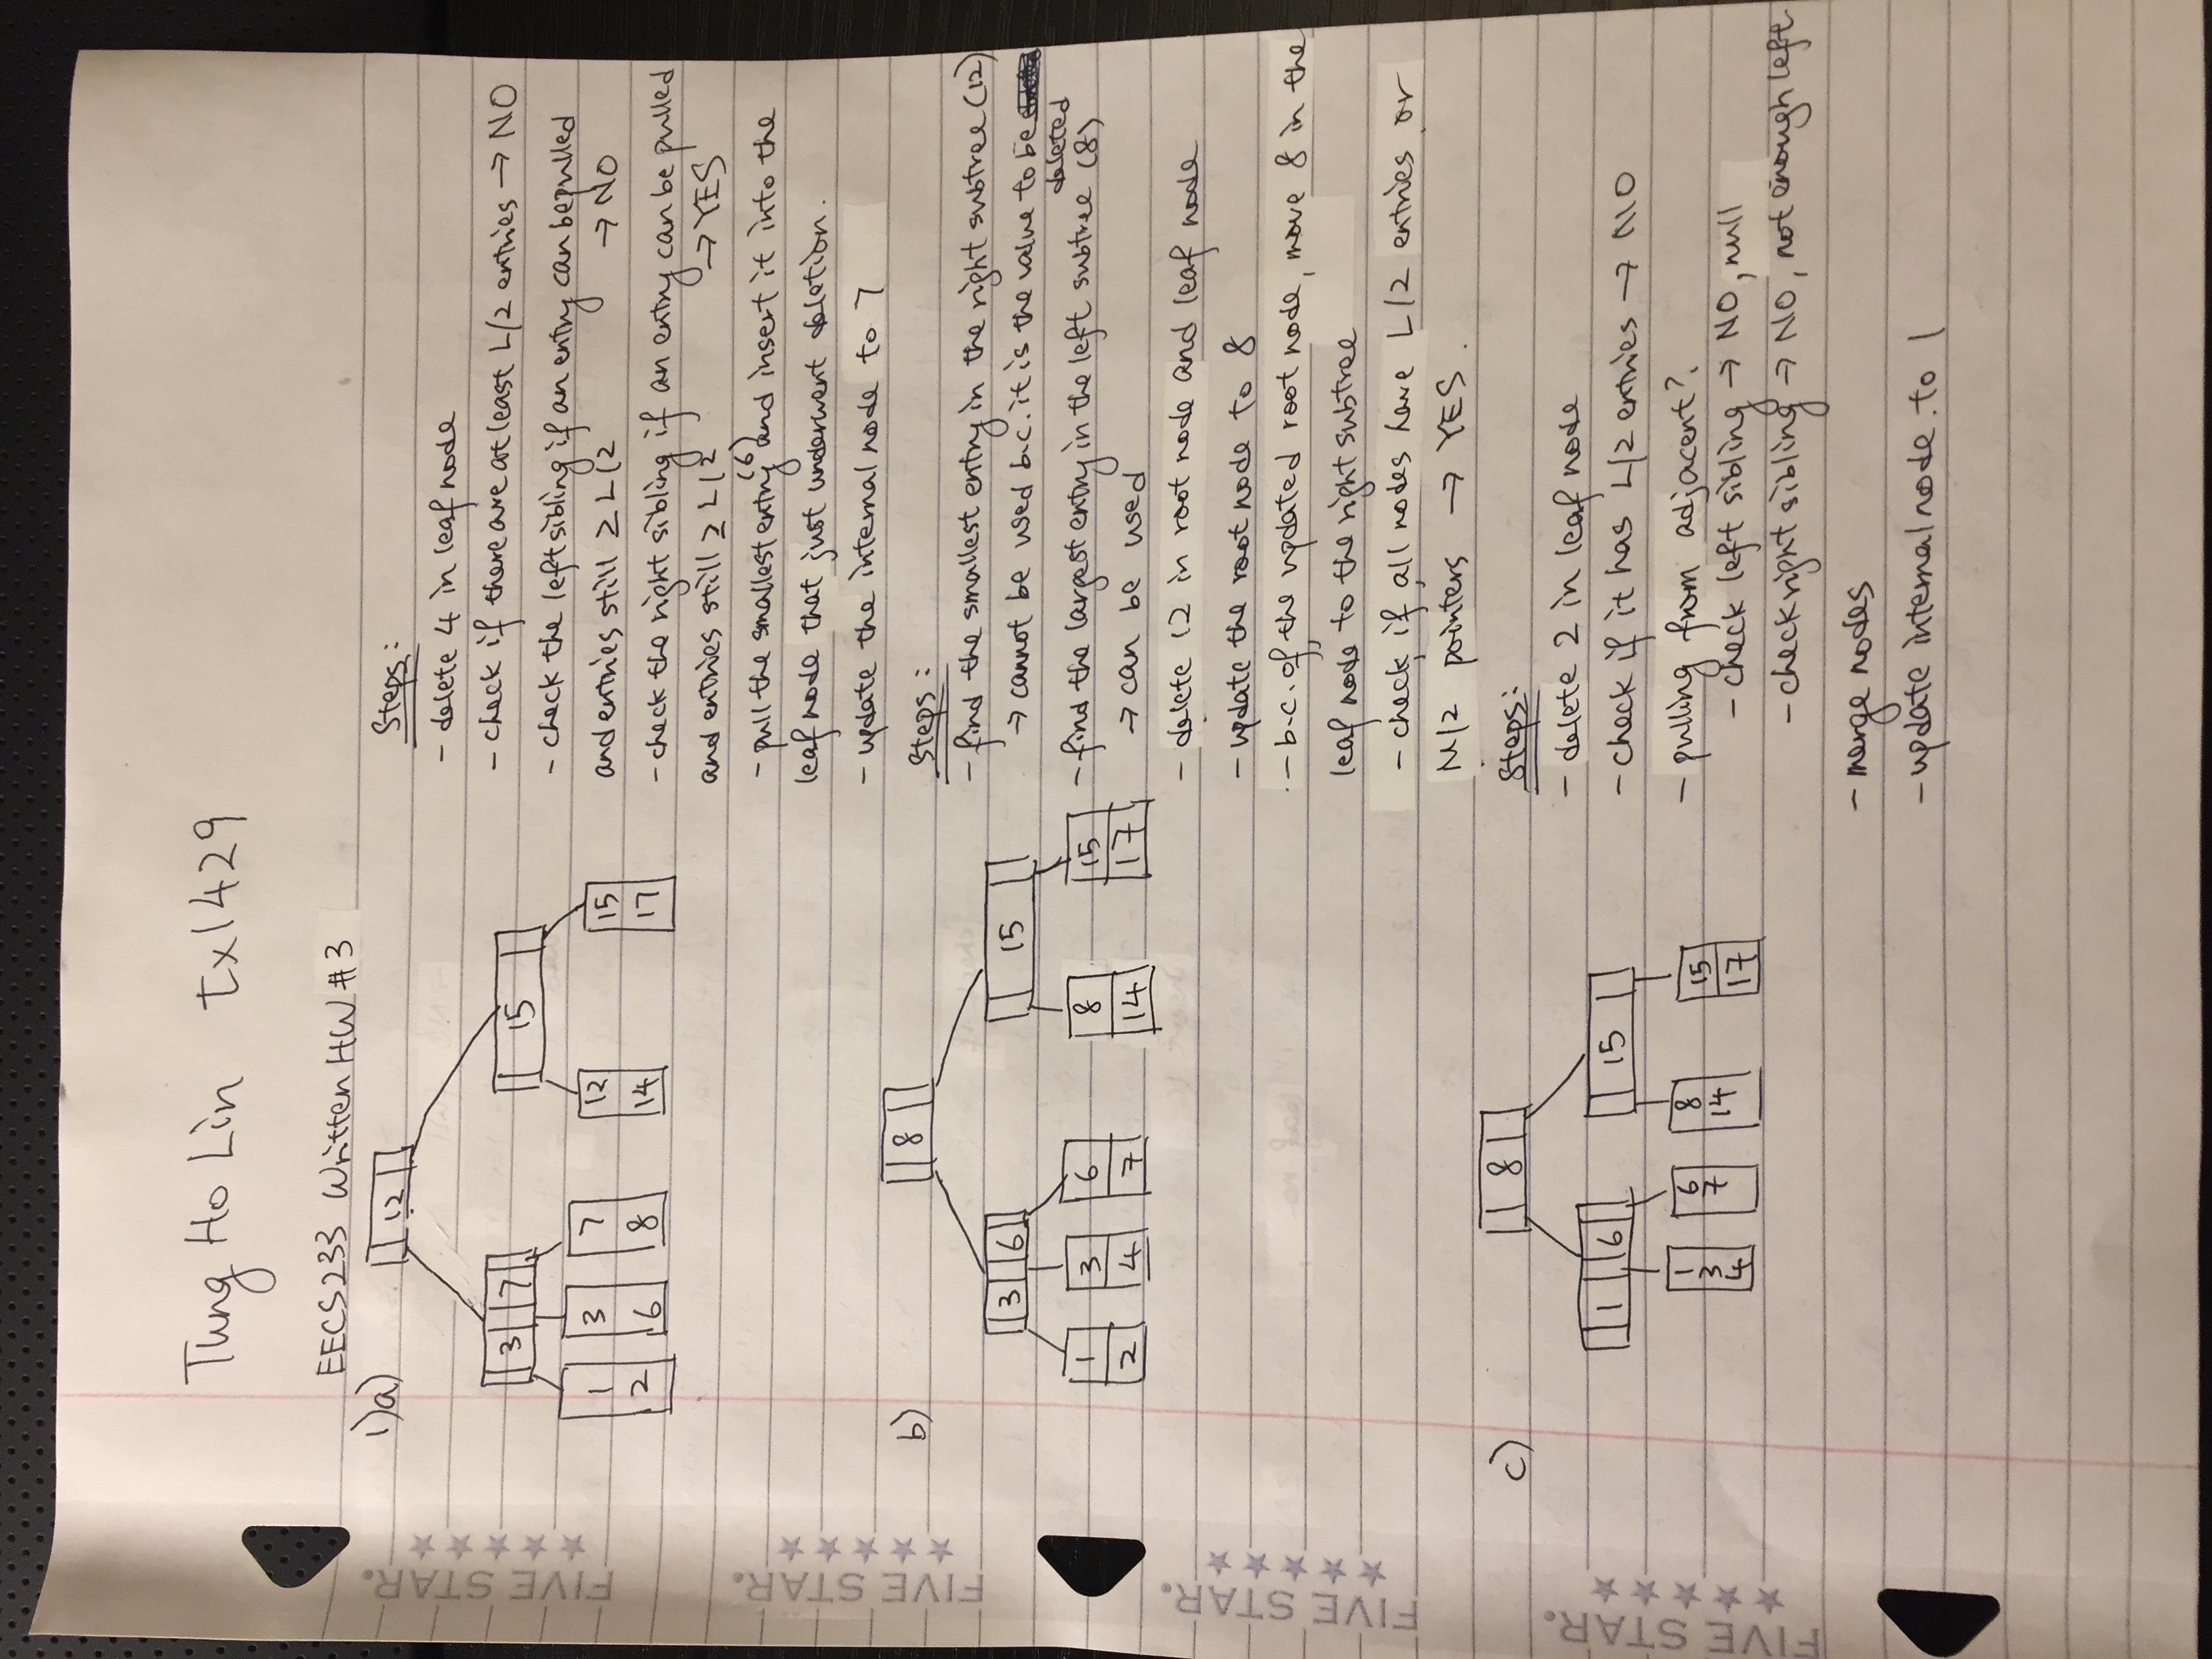 Tung Ho Lin txl429
EECS233 Written HW #3
1)a)
12
3 7
15
1 3 7 12 15
2 6 8 14 17
Steps:
- delete 4 in leaf node
- check if there are at least L/2 entries → NO
- check the left sibling if an entry can be pulled
and entries still ≥ L/2 → NO
- check the right sibling if an entry can be pulled
and entries still ≥ L/2 → YES
- pull the smallest entry (6) and insert it into the
leaf node that just underwent deletion.
- update the internal node to 7
b)
8
3 6
15
1 3 6 8 15
2 4 7 14 17
Steps:
- find the smallest entry in the right subtree (12)
→ cannot be used b.c. it is the value to be
deleted
- find the largest entry in the left subtree (8)
→ can be used
- delete 12 in root node and leaf node
- update the root node to 8
- b.c. of the updated root node, move 8 in the
leaf node to the right subtree
- check if all nodes have L/2 entries or
M/2 pointers → YES.
c)
8
1 6
15
1 6 8 15
3 7 14 17
4
Steps:
- delete 2 in leaf node
- check if it has L/2 entries → NO
- pulling from adjacent?
- check left sibling → NO, null
- check right sibling → NO, not enough left
- merge nodes
- update internal node to 1
FIVE STAR.
FIVE STAR.
FIVE STAR.
FIVE STAR.